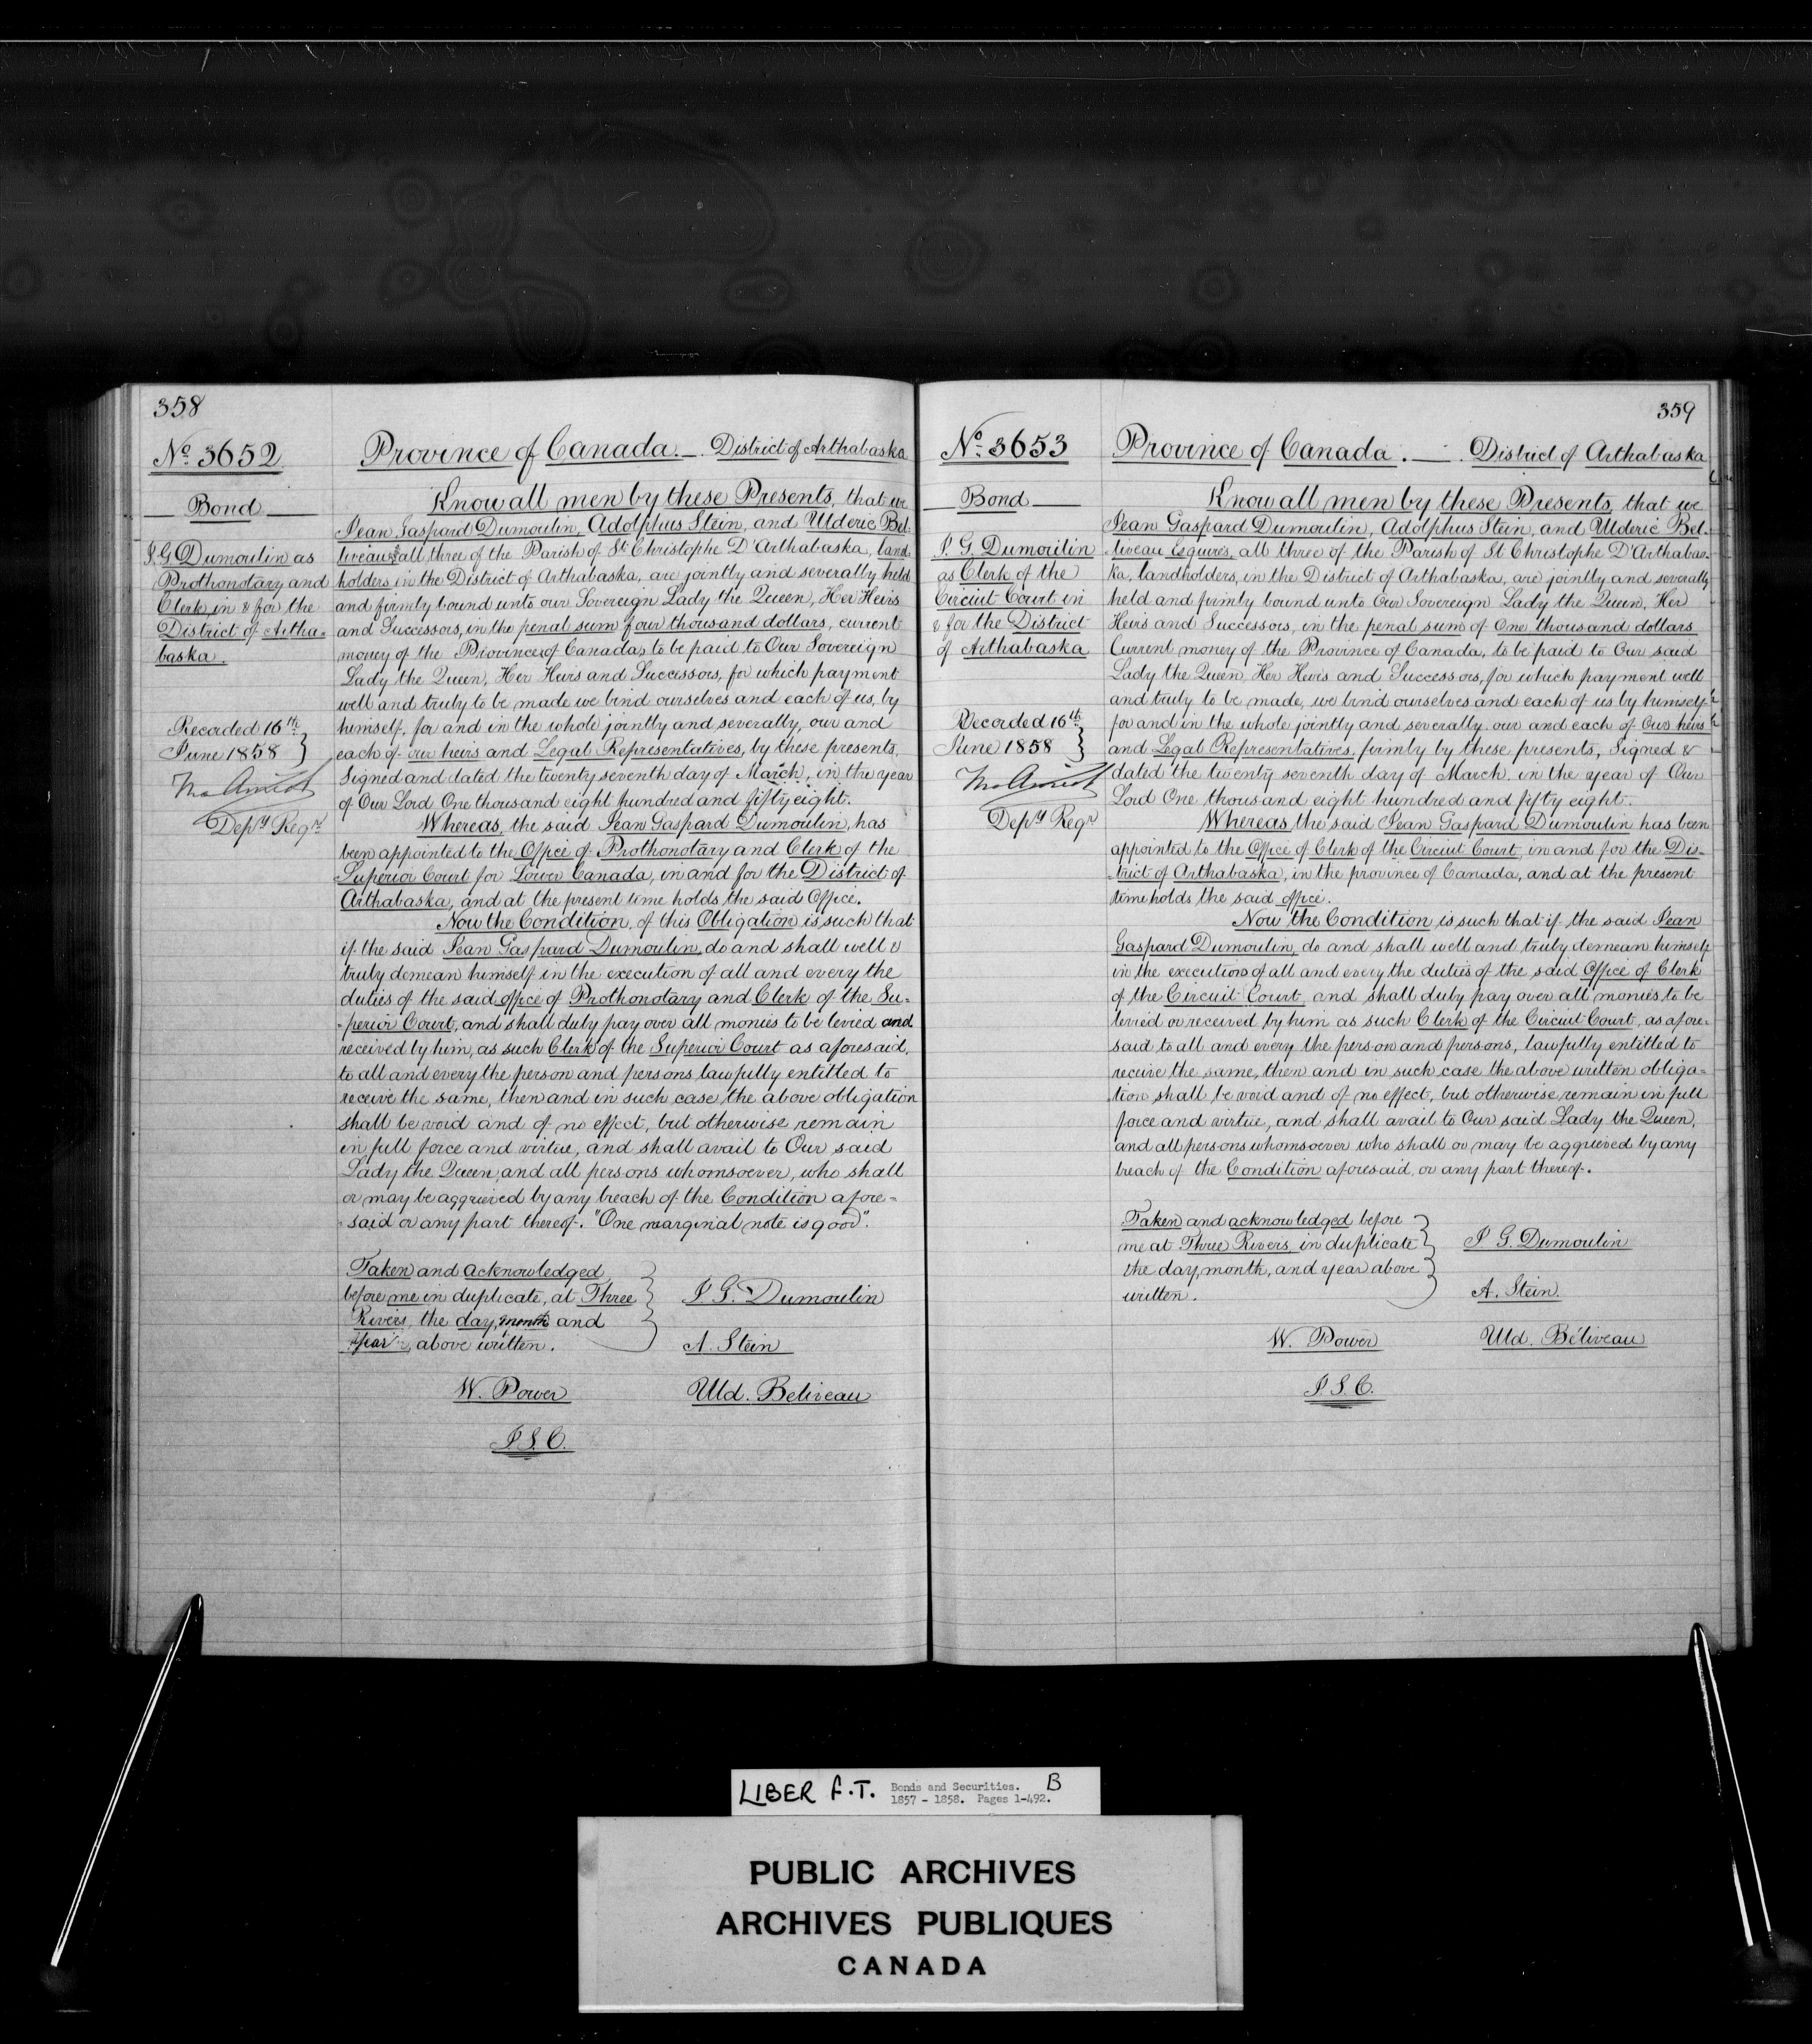 358
No. 3652
Bond
J. G. Dumoulin as
Prothonotary and
Clerk in & for the
District of Artha=
baska.
Recorded 16th
June 1858
Depy Regr
Province of Canada. — . District of Arthabaska
Know all men by these Presents, that we
Jean Gaspard Dumoulin, Adolphus Stein, and Ulderic Bel-
liveau all three of the Parish of St Christophe D'Arthabaska, land
holders in the District of Arthabaska, are jointly and severally held
and firmly bound unto our Sovereign Lady the Queen, Her Heirs
and Successors, in the penal sum four thousand dollars, current
money of the Province of Canada, to be paid to Our Sovereign
Lady the Queen, Her Heirs and Successors, for which payment
well and truly to be made we bind ourselves and each of us, by
himself, for and in the whole jointly and severally, our and
each of our heirs and Legal Representatives, by these presents,
Signed and dated the twenty seventh day of March, in the year
of Our Lord One thousand eight hundred and fifty eight.
Whereas, the said Jean Gaspard Dumoulin, has
been appointed to the Office of Prothonotary and Clerk of the
Superior Court for Lower Canada, in and for the District of
Arthabaska, and at the present time holds the said Office.
Now the Condition, of this Obligation is such that
if the said Jean Gaspard Dumoulin, do and shall well &
truly demean himself in the execution of all and every the
duties of the said office of Prothonotary and Clerk of the Su=
=perior Court, and shall duly pay over all monies to be levied and
received by him, as such Clerk of the Superior Court as aforesaid,
to all and every the person and persons lawfully entitled to
receive the same, then and in such case the above obligation
shall be void and of no effect, but otherwise remain
in full force and virtue, and shall avail to Our said
Lady the Queen, and all persons whomsoever, who shall
or may be aggrieved by any breach of the Condition afore=
=said or any part thereof. "One marginal note is good".
Taken and acknowledged
before me in duplicate, at Three
Rivers, the day, month and
year above written.
J. G. Dumoulin
A. Stein
W. Power
Uld. Beliveau
J. S. C.
359
No. 3653
Bond
J. G. Dumoulin
as Clerk of the
Circuit Court in
& for the District
of Arthabaska
Recorded 16th
June 1858
Depy Regr
Province of Canada. — . District of Arthabaska
Know all men by these Presents, that we
Jean Gaspard Dumoulin, Adolphus Stein, and Ulderic Bel-
liveau Esquires, all three of the Parish of St Christophe D'Arthabas-
ka, landholders, in the District of Arthabaska, are jointly and severally
held and firmly bound unto Our Sovereign Lady the Queen, Her
Heirs and Successors, in the penal sum of One thousand dollars
Current money of the Province of Canada, to be paid to Our said
Lady the Queen, Her Heirs and Successors, for which payment well
and truly to be made, we bind ourselves and each of us by himself
for and in the whole jointly and severally our and each of Our heirs
and Legal Representatives, firmly by these presents, Signed &
dated the twenty seventh day of March in the year of Our
Lord One thousand eight hundred and fifty eight.
Whereas the said Jean Gaspard Dumoulin has been
appointed to the Office of Clerk of the Circuit Court, in and for the Dis-
=trict of Arthabaska, in the province of Canada, and at the present
time holds the said office.
Now the Condition is such that if the said Jean
Gaspard Dumoulin, do and shall well and truly demean himself
in the execution of all and every the duties of the said Office of Clerk
of the Circuit Court, and shall duly pay over all monies to be
levied or received by him as such Clerk of the Circuit Court, as afore=
said to all and every the person and persons, lawfully entitled to
receive the same, then and in such case the above written obliga=
tion shall be void and of no effect, but otherwise remain in full
force and virtue, and shall avail to Our said Lady the Queen,
and all persons whomsoever who shall or may be aggrieved by any
breach of the Condition aforesaid, or any part thereof.
Taken and acknowledged before
me at Three Rivers, in duplicate
the day, month, and year above
written.
J. G. Dumoulin
A. Stein.
W. Power
Uld. Béliveau
J. S. C.
LIBER F.T. Bonds and Securities. B
1857 - 1858. Pages 1-492.
PUBLIC ARCHIVES
ARCHIVES PUBLIQUES
CANADA